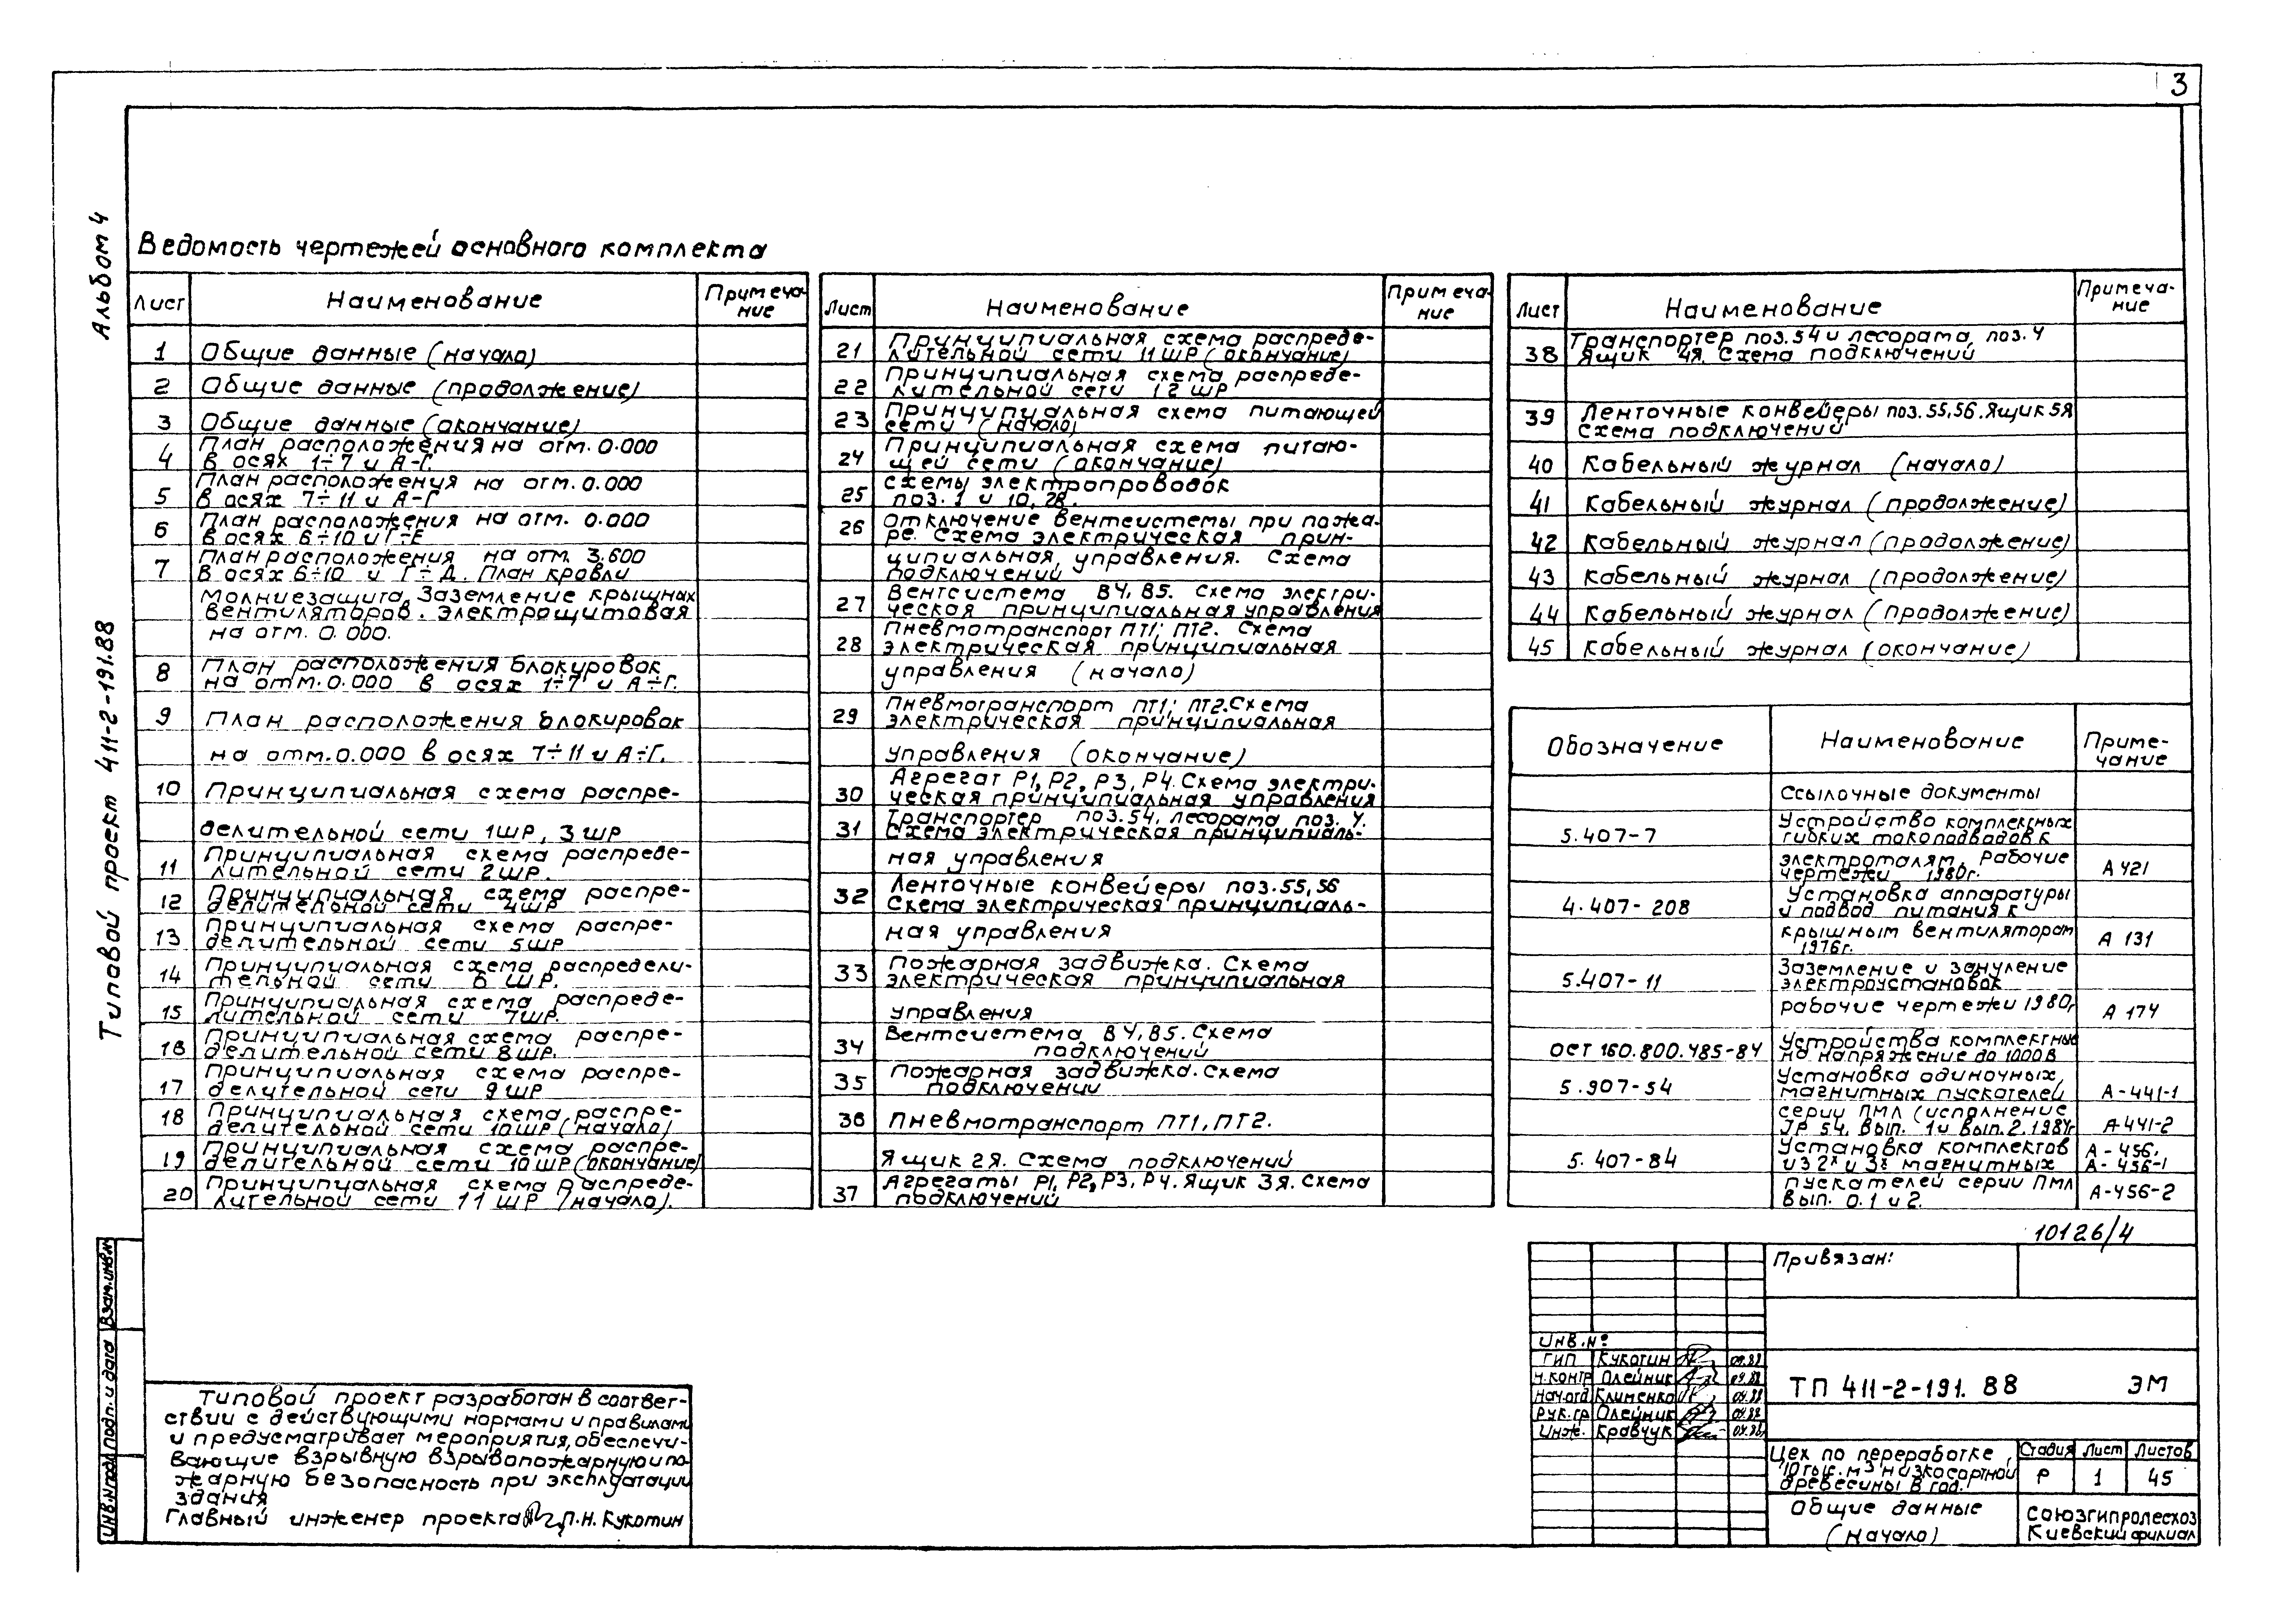 3
Альбом 4
Типовой проект 411-2-191.88
Ведомость чертежей основного комплекта
Лист Наименование Примеча-
ние
1 Общие данные (начало)
2 Общие данные (продолжение)
3 Общие данные (окончание)
План расположения на отм. 0.000
4 в осях 1÷7 и А-Г.
План расположения на отм. 0.000
5 в осях 7÷11 и А-Г
План расположения на отм. 0.000
6 в осях 6÷10 и Г÷Е
План расположения на отм. 3.600
7 в осях 6÷10 и Г÷Д. План кровли
Молниезащита. Заземление крышных
вентиляторов. Электрощитовая
на отм. 0.000.
План расположения блокировок
8 на отм. 0.000 в осях 1÷7 и А÷Г.
9 План расположения блокировок
на отм. 0.000 в осях 7÷11 и А÷Г.
10 Принципиальная схема распре-
делительной сети 1ШР, 3ШР
Принципиальная схема распреде-
11 лительной сети 2ШР.
Принципиальная схема распре-
12 делительной сети 4ШР
Принципиальная схема распре-
13 делительной сети 5ШР
Принципиальная схема распредели-
14 тельной сети 6 ШР.
Принципиальная схема распреде-
15 лительной сети 7ШР.
Принципиальная схема распре-
16 делительной сети 8ШР.
Принципиальная схема распре-
17 делительной сети 9ШР
Принципиальная схема распре-
18 делительной сети 10ШР (начало)
Принципиальная схема распре-
19 делительной сети 10ШР (окончание)
Принципиальная схема распреде-
20 лительной сети 11 ШР (начало).
Лист Наименование Примеча-
ние
Принципиальная схема распреде-
21 лительной сети 11ШР (окончание)
Принципиальная схема распреде-
22 лительной сети 12 ШР
Принципиальная схема питающей
23 сети (начало)
Принципиальная схема питаю-
24 щей сети (окончание)
Схемы электропроводок
25 поз. 1 и 10, 28.
Отключение вентсистемы при пожа-
26 ре. Схема электрическая прин-
ципиальная, управления. Схема
подключений
Вентсистема В4, В5. Схема электри-
27 ческая принципиальная управления
Пневмотранспорт ПТ1; ПТ2. Схема
28 электрическая принципиальная
управления (начало)
Пневмотранспорт ПТ1; ПТ2. Схема
29 электрическая принципиальная
управления (окончание)
Агрегат Р1, Р2, Р3, Р4. Схема электри-
30 ческая принципиальная управления
Транспортер поз. 54, лесорама поз. 4.
31 Схема электрическая принципиаль-
ная управления
Ленточные конвейеры поз. 55, 56
32 Схема электрическая принципиаль-
ная управления
Пожарная задвижка. Схема
33 электрическая принципиальная
управления
Вентсистема В4, В5. Схема
34 подключений
Пожарная задвижка. Схема
35 подключений
36 Пневмотранспорт ПТ1, ПТ2.
Ящик 2Я. Схема подключений
Агрегаты Р1, Р2, Р3, Р4. Ящик 3Я. Схема
37 подключений
Лист Наименование Примеча-
ние
Транспортер поз. 54 и лесорама, поз. 4
38 Ящик 4Я. Схема подключений
39 Ленточные конвейеры поз. 55, 56. Ящик 5Я
Схема подключений
40 Кабельный журнал (начало)
41 Кабельный журнал (продолжение)
42 Кабельный журнал (продолжение)
43 Кабельный журнал (продолжение)
44 Кабельный журнал (продолжение)
45 Кабельный журнал (окончание)
Обозначение Наименование Приме-
чание
Ссылочные документы
Устройство комплектных
5.407-7 гибких токоподводов к
электроталям. Рабочие
чертежи 1980г. А 421
Установка аппаратуры
4.407-208 и подвод питания к
крышным вентиляторам
1976г. А 131
Заземление и зануление
5.407-11 электроустановок
рабочие чертежи 1980г. А 174
Устройства комплектные
ОСТ 160.800.485-84 на напряжение до 1000В
Установка одиночных
5.907-54 магнитных пускателей А-441-1
серии ПМЛ (исполнение
JP 54. вып. 1 и вып. 2. 1984г. А-441-2
Установка комплектов А-456,
5.407-84 из 2х и 3х магнитных А-456-1
пускателей серии ПМЛ
вып. 0. 1 и 2. А-456-2
10126/4
Привязан:
Инв. №
ГИП Кукотин 09.88
Н.контр Олейник 09.88
Нач.отд Клименко 09.88
Рук.гр. Олейник 09.88
Инж. Кравчук 09.88
ТП 411-2-191. 88 ЭМ
Цех по переработке
10 тыс. м3 низкосортной
древесины в год.
Стадия Лист Листов
Р 1 45
Общие данные
(начало)
Союзгипролесхоз
Киевский филиал
Типовой проект разработан в соответ-
ствии с действующими нормами и правилами
и предусматривает мероприятия, обеспечи-
вающие взрывную взрывопожарную и по-
жарную безопасность при эксплуатации
здания
Главный инженер проекта П.Н. Кукотин
Инв.№ подл. Подп. и дата Взам.инв.№